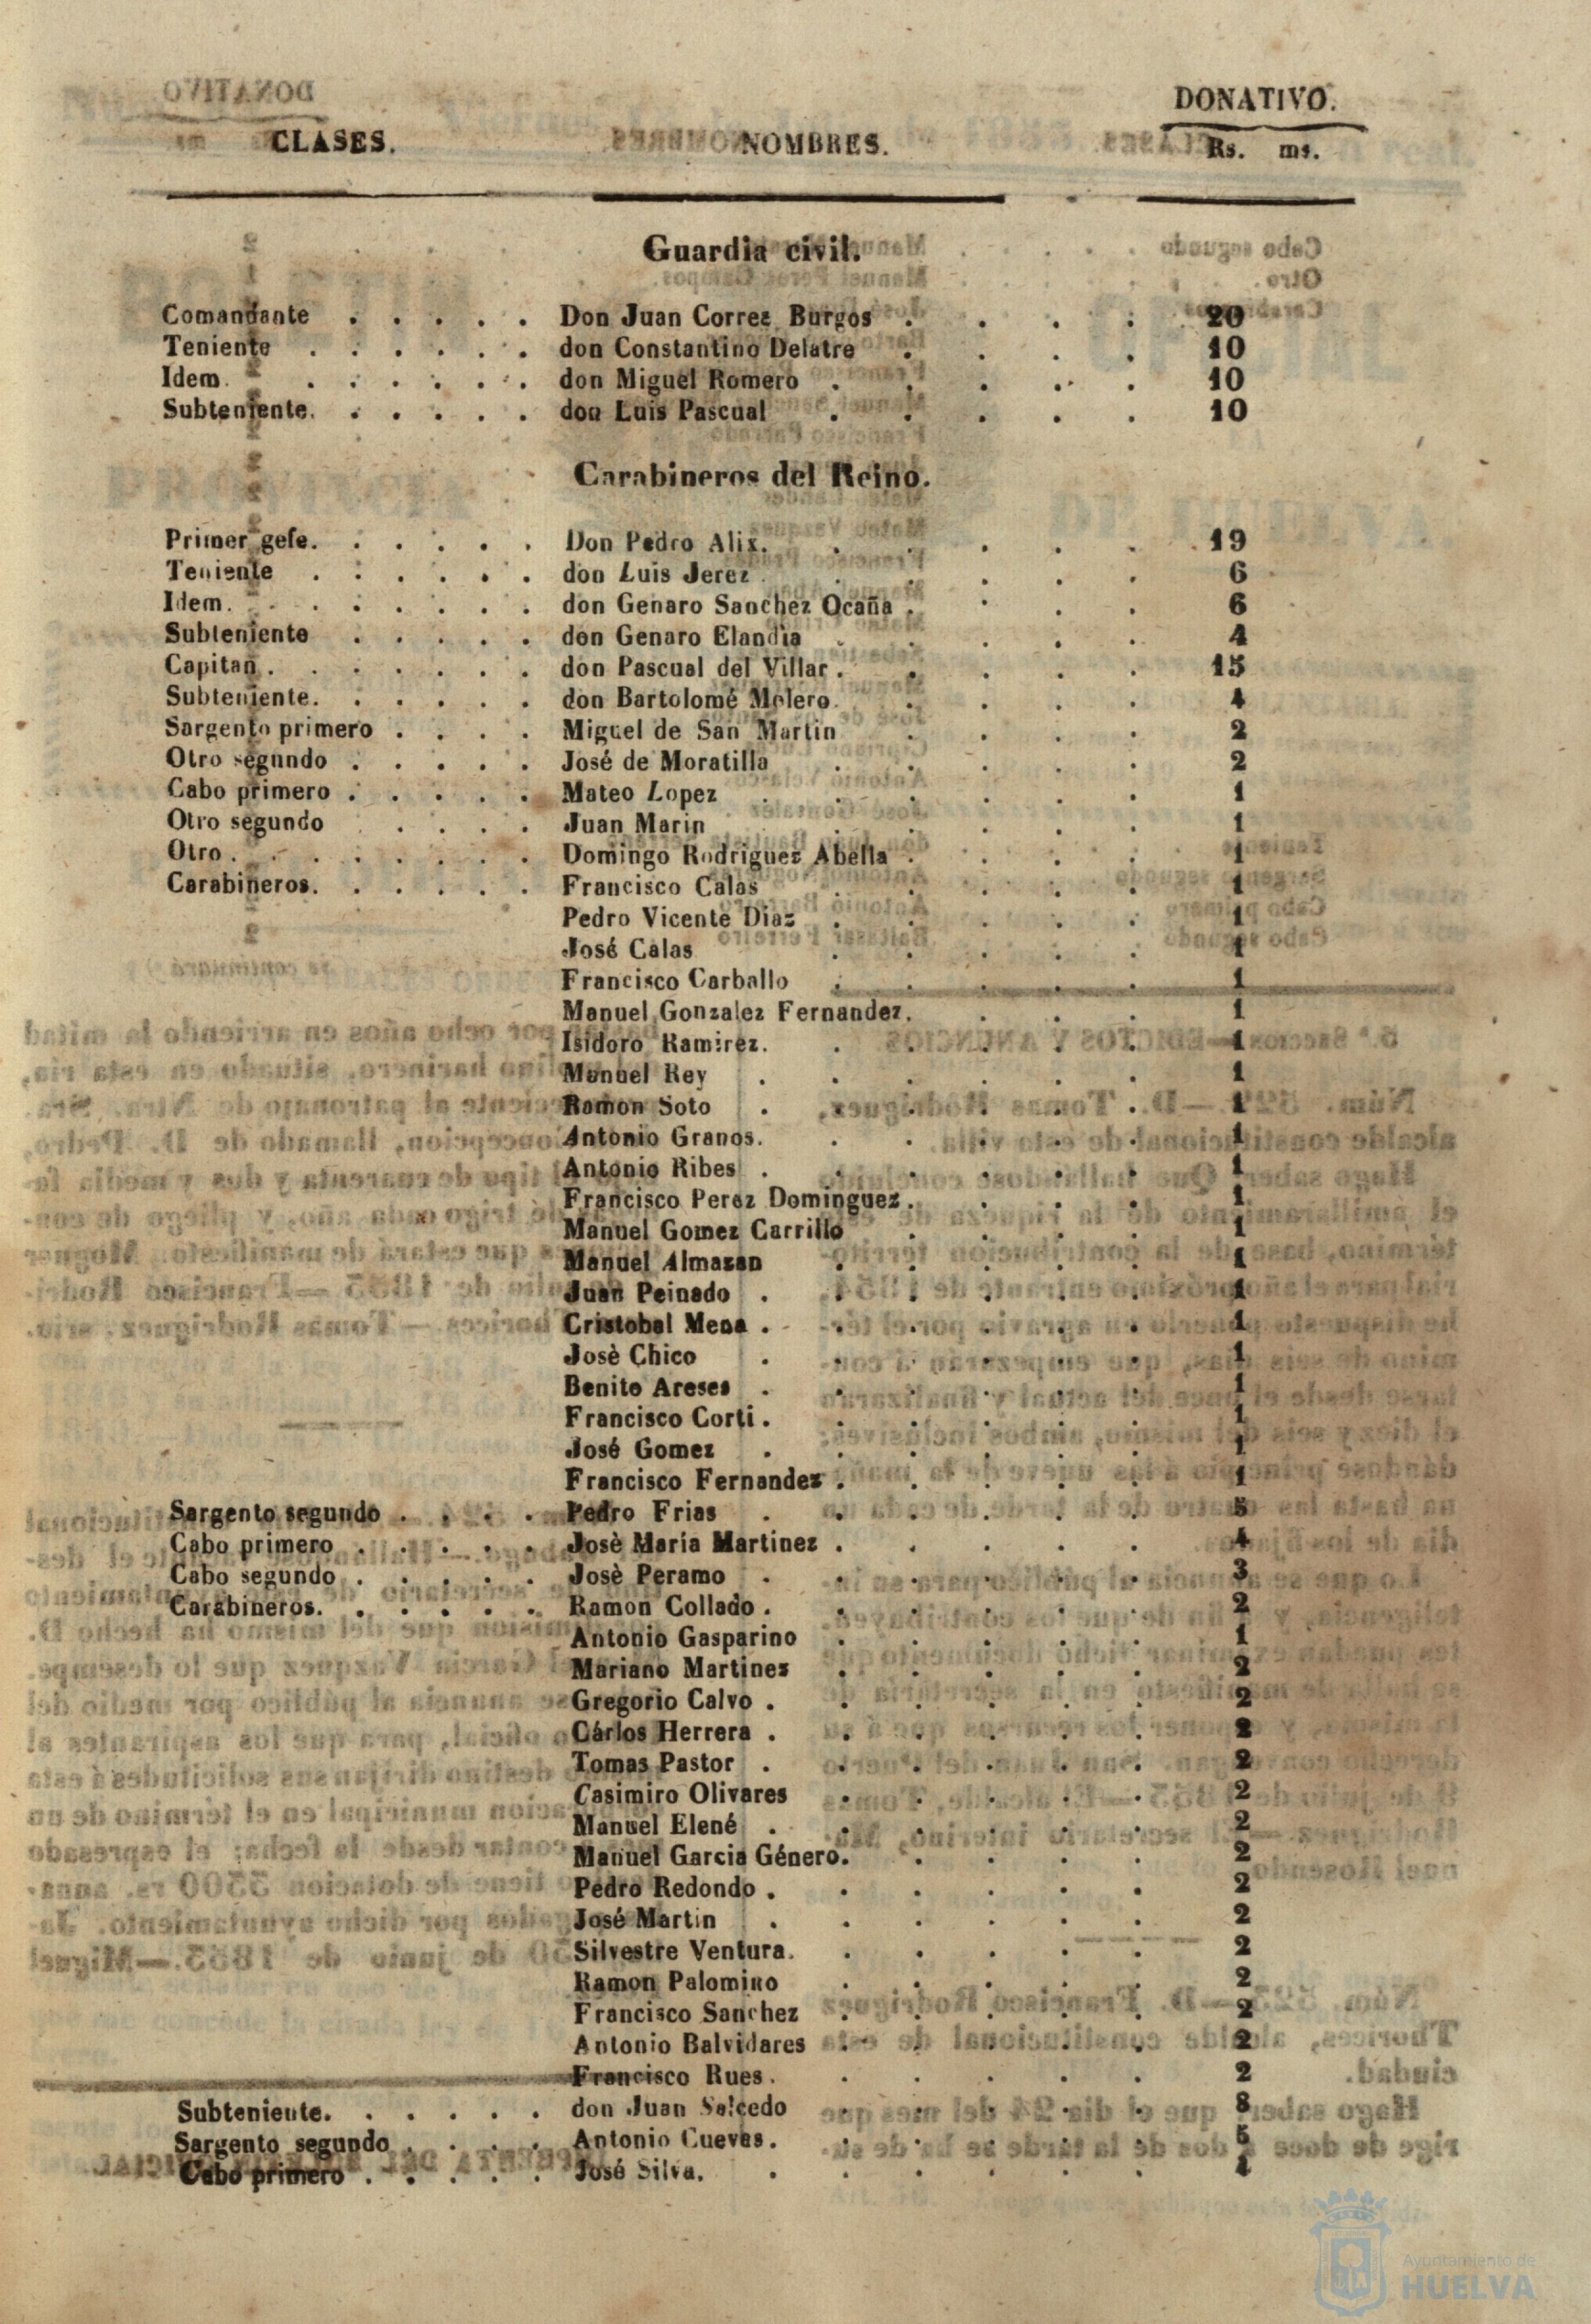 DONATIVO.
CLASES. NOMBRES. Rs. ms.
Guardia civil.
Comandante . . . . . Don Juan Correz Burgos . . . . 20
Teniente . . . . . . don Constantino Delatre . . . . 10
Idem. . . . . . . don Miguel Romero . . . . . 10
Subteniente. . . . . . don Luis Pascual . . . . . 10
Carabineros del Reino.
Primer gefe. . . . . . Don Pedro Alix. . . . . . 19
Teniente . . . . . . don Luis Jerez . . . . . 6
Idem. . . . . . . don Genaro Sanchez Ocaña . . . . 6
Subteniente . . . . . don Genaro Elandia . . . . . 4
Capitan . . . . . . . don Pascual del Villar . . . . . 15
Subteniente. . . . . . don Bartolomé Molero . . . . 4
Sargento primero . . . . Miguel de San Martin . . . . 2
Otro segundo . . . . . José de Moratilla . . . . . 2
Cabo primero . . . . . Mateo Lopez . . . . . . 1
Otro segundo . . . . Juan Marin . . . . . 1
Otro . . . . . . . . Domingo Rodriguez Abella . . . . 1
Carabineros. . . . . . Francisco Calas . . . . . 1
Pedro Vicente Diaz . . . . . 1
José Calas . . . . . 1
Francisco Carballo . . . . . 1
Manuel Gonzalez Fernandez. . . . 1
Isidoro Ramirez. . . . . . 1
Manuel Rey . . . . . . 1
Ramon Soto . . . . . . 1
Antonio Granos. . . . . . 1
Antonio Ribes . . . . . . 1
Francisco Perez Dominguez . . . . 1
Manuel Gomez Carrillo . . . . 1
Manuel Almazan . . . . . 1
Juan Peinado . . . . . . 1
Cristobal Mena . . . . . . 1
Josè Chico . . . . . . 1
Benito Areses . . . . . . 1
Francisco Corti . . . . . . 1
José Gomez . . . . . . 1
Francisco Fernandez . . . . . 1
Sargento segundo . . . . Pedro Frias . . . . . . 5
Cabo primero . . . . . Josè María Martinez . . . . . 4
Cabo segundo . . . . . Josè Peramo . . . . . . 3
Carabineros. . . . . . Ramon Collado . . . . . . 2
Antonio Gasparino . . . . . 1
Mariano Martinez . . . . . 2
Gregorio Calvo . . . . . . 2
Cárlos Herrera . . . . . . 2
Tomas Pastor . . . . . . 2
Casimiro Olivares . . . . . 2
Manuel Elené . . . . . . 2
Manuel Garcia Género. . . . . 2
Pedro Redondo . . . . . . 2
José Martin . . . . . . 2
Silvestre Ventura. . . . . . 2
Ramon Palomino . . . . . 2
Francisco Sanchez . . . . . 2
Antonio Balvidares . . . . . 2
Francisco Rues . . . . . . 2
Subteniente. . . . . . don Juan Salcedo . . . . . 8
Sargento segundo . . . . Antonio Cuevas. . . . . . 5
Cabo primero . . . . . José Silva. . . . . . . 4
Ayuntamiento de
HUELVA